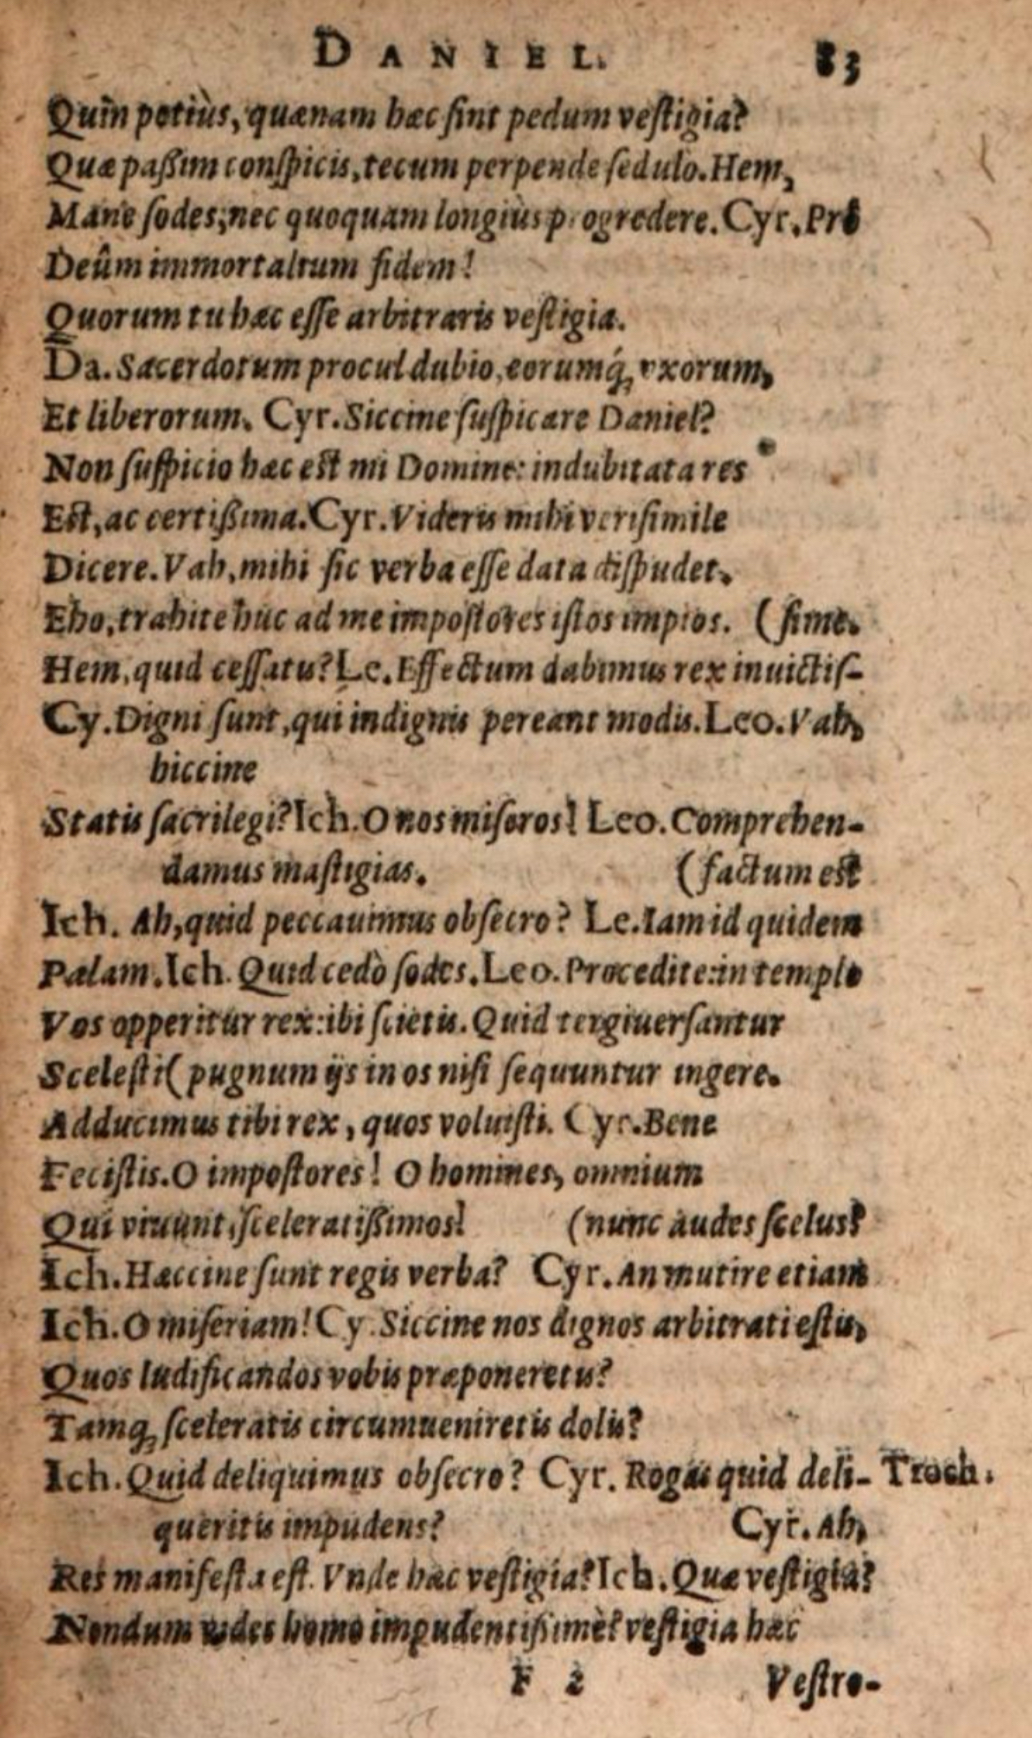 DANIEL. 83
Quin potiùs, quænam hæc ſint pedum veſtigia?
Quæ paßim conſpicis, tecum perpende ſedulo. Hem,
Mane ſodes, nec quoquam longiùs progredere. Cyr. Prô
Deûm immortalium fidem!
Quorum tu hæc eſſe arbitraris veſtigia.
Da. Sacerdotum procul dubio, eorumq́; vxorum,
Et liberorum. Cyr. Siccine ſuſpicare Daniel?
Non ſuſpicio hæc eſt mi Domine: indubitata res
Eſt, ac certißima. Cyr. Videris mihi veriſimile
Dicere. Vah, mihi ſic verba eſſe data diſpudet.
Eho, trahite huc ad me impoſtores iſtos impios. (ſime.
Hem, quid ceſſatis? Le. Effectum dabimus rex inuictiſ-
Cy. Digni ſunt, qui indignis pereant modis. Leo. Vah,
hiccine
Statis ſacrilegi? Ich. O nos miſeros! Leo. Comprehen-
damus maſtigias. (factum eſt
Ich. Ah, quid peccauimus obſecro? Le. Iam id quidem
Palam. Ich. Quid cedò ſodes. Leo. Procedite: in templo
Vos opperitur rex: ibi ſcietis. Quid tergiuerſantur
Sceleſti( pugnum ijs in os niſi ſequuntur ingere.
Adducimus tibi rex, quos voluiſti. Cyr. Bene
Feciſtis. O impoſtores! O homines, omnium
Qui viuunt, ſceleratißimos! (nunc audes ſcelus?
Ich. Hæccine ſunt regis verba? Cyr. An mutire etiam
Ich. O miſeriam! Cy. Siccine nos dignos arbitrati eſtis,
Quos ludificandos vobis præponeretis?
Tamq; ſceleratis circumueniretis dolis?
Ich. Quid deliquimus obſecro? Cyr. Rogas quid deli- Troch.
queritis impudens? Cyr. Ah,
Res manifeſta eſt. Vnde hæc veſtigia? Ich. Quæ veſtigia?
Nondum vides homo impudentißimè? veſtigia hæc
F 2 Veſtro-